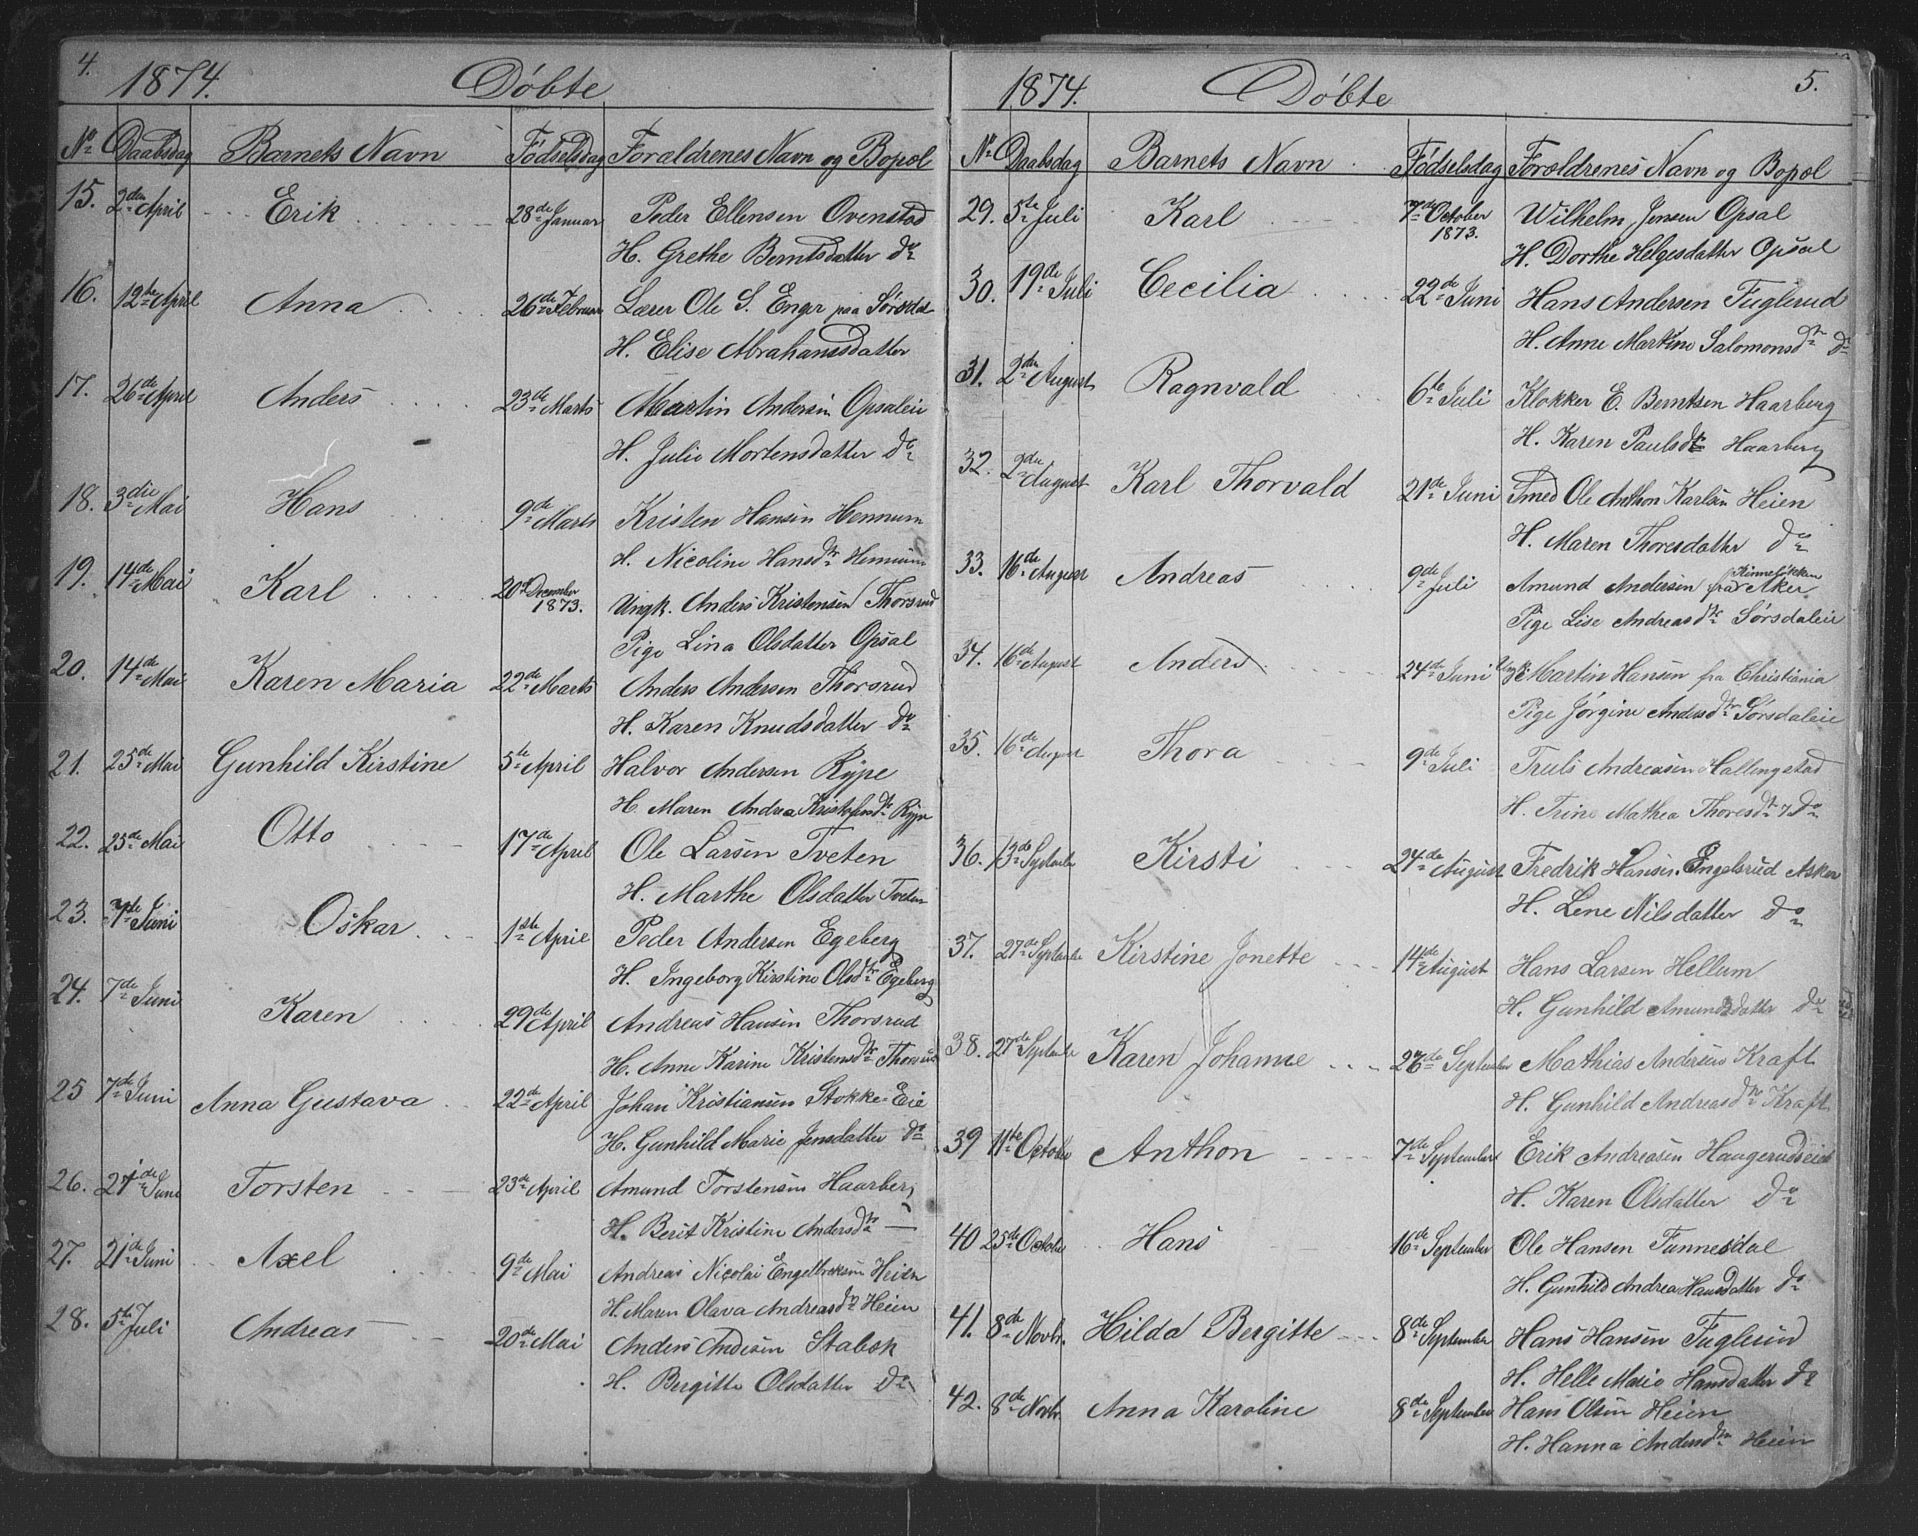 4.
1874. Döbte
No Daabsdag Barnets Navn Födselsdag Forældrenes Navn og Bopæl
15. 2den April Erik 28de Januar Peder Ellensen Ovenstad
H. Grethe Berntsdatter do
16. 12te April Anna 26de Februar Lærer Ole S. Enger paa Sörsdal
H. Elise Abrahamsdatter
17. 26de April Anders 23de Marts Martin Andersen Opsaleie
H. Julie Mortensdatter do
18. 3die Mai Hans 9de Marts Kristen Hansen Hennum
H. Nicoline Hansdtr Hennum
19. 14de Mai Karl 20de December 1873. Ungk. Anders Kristensen Thorsrud
Pige Lina Olsdatter Opsal
20. 14de Mai Karen Maria 22de Marts Anders Andersen Thorsrud
H. Karen Knudsdatter do
21. 25de Mai Gunhild Kirstine 5te April Halvor Andersen Rype
H. Maren Andrea Kristofersdtr Rype
22. 25de Mai Otto 17de April Ole Larsen Tveten
H. Marthe Olsdatter Tveten
23. 7de Juni Oskar 1ste April Peder Andersen Egeberg
H. Ingeborg Kirstine Olsdtr Egeberg
24. 7de Juni Karen 29de April Andreas Hansen Thorsrud
H. Anne Karine Kristensdtr Thorsrud
25 7de Juni Anna Gustava 22de April Johan Kristiansen Stokke-Eie
H. Gunhild Marie Jensdatter do
26. 21de Juni Torsten 23de April Amund Torstensen Haarberg
H. Berit Kristine Andersdtr —
27. 21de Juni Axel 9de Mai Andreas Nicolai Engelbretsen Heien
H. Maren Olava Andreasdtr Heien
28. 5te Juli Andreas 20de Mai Anders Andersen Stabæk
H. Bergitte Olsdatter do
5.
1874. Döbte
No Daabsdag Barnets Navn Födselsdag Forældrenes Navn og Bopæl
29. 5te Juli Karl 7de October 1873. Wilhelm Jensen Opsal
H. Dorthe Helgesdatter Opsal
30. 19de Juli Cecilia 22de Juni Hans Andersen Fuglerud
H. Anne Martine Salomonsdtr do
31. 2den August Ragnvald 6te Juli Klokker E. Berntsen Haarberg
H. Karen Paulsdtr Haarberg
32. 2den August Karl Thorvald 21de Juni Smed Ole Anthon Karlsen Heien
H. Maren Thoresdatter do
33. 16de August Andreas 9de Juli Amund Andersen fra Aker
Pige Lise Andreasdtr Sörsdaleie
34. 16de August Anders 24de Juni Ungk. Martin Hansen fra Christiania
Pige Jörgine Andersdtr Sörsdaleie
35. 16de August Thora 9de Juli Truls Andreasen Hallingstad
H. Trine Mathea Thoresdtr do
36. 13de September Kirsti 24de August Fredrik Hansen Engelsrud Asker
H. Lene Nilsdatter do
37. 27de September Kirstine Jonette 14de August Hans Larsen Hellum
H. Gunhild Amundsdatter do
38. 27de September Karen Johanne 26de September Mathias Andersen Kraft
H. Gunhild Andreasdtr Kraft
39 11te October Anthon 7de September Erik Andreasen Haugerudseie
H. Karen Olsdatter do
40 25de October Hans 16de September Ole Hansen Tunnesdal
H. Gunhild Andrea Hansdatter do
41. 8de Novbr. Hilda Bergitte 8de September Hans Hansen Fuglerud
H. Helle Marie Hansdatter do
42. 8de Novbr. Anna Karoline 8de September Hans Olsen Heien
H. Hanna Andersdtr Heien